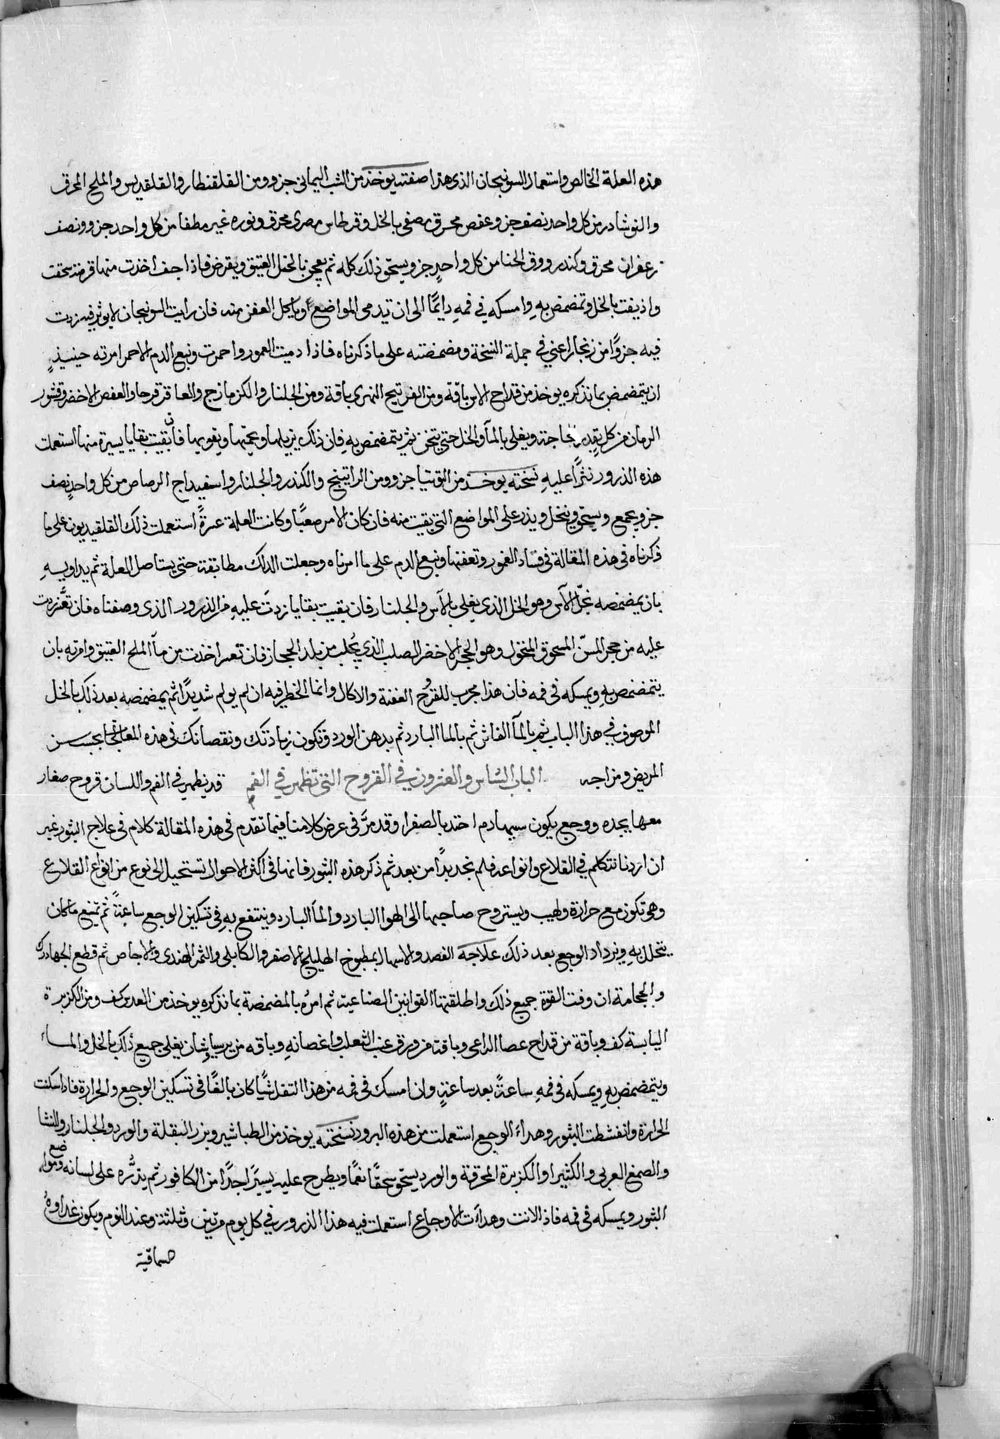 هذه العلة الخالص واستعمال السونيجان الذى هذا صفته يوخذ من الشب اليمانى جزو ومن القلقنطار والقلقديس والملح المحرق
والنوشادر من كل واحد نصف جزو وعفص محرق مصفى بالخل وقرطاس مصرى محرق ونوره غير مطفا من كل واحد جزو ونصف
زعفران محرق وكندر وورق الحنا من كل واحد جزو ويسحق ذلك كله ثم يعجن بالخل العتيق ويقرص فاذا جف اخذت منها قرصة سحقت
واذيفت بالخل وتمضمض به وامسكه فى فمه دايمًا الى ان تدمى المواضع او ياكل العفن منه فان رايت السونيجان لا يوثر فيه زدت
فيه جزوًا من زنجار اعنى فى جملة النسخة ومضمضته على ما ذكرناه فاذا دميت العمور واحمرت ونبع الدم الاحمر امرته حينيذٍ
ان يتمضمض بما نذكره يوخذ من قداح الاس باقة ومن الفوتنج النهرى باقة ومن الجلنار والكزمازج والعاقرقرحا والعفص الاخضر وقشور
الرمان من كل بقدر الحاجة ويغلى بالمآ والخل حتى يثخن ثم يتمضمض به فان ذلك يزيلها ويحميها ويقويها فان بقيت بقايا يسيرة منها استعملت
هذه الذرور نثرًا عليه نسخته يوخذ من التوتيا جزو ومن الراتينج والكندر والجلنار واسفيداج الرصاص من كل واحد نصف
جزو يجمع ويسحق وينخل ويذر على المواضع التى بقيت منه فان كان الامر صعبًا وكانت العلة عسرةً استعملت ذلك القلقيديون على ما
ذكرناه فى هذه المقالة فى فساد العمور وتعفنها ونبع الدم على ما امرناه وجعلت الدلك مطابقة حتى يستاصل العلة ثم يداويه
بان يمضمضه بخل الآس وهو الخل الذى يغلى بالآس والجلنار فان بقيت بقايا زدت عليه من الذرور الذى وصفناه فان تعذر زدت
عليه من حجر المسنّ المسحوق المنخول وهو الحجر الاخضر الصلب الذى يجلب من بلد الحجاز فان تعسر اخذت من مآ الملح العتيق وامرته بان
يتمضمض به ويمسكه فى فمه فان هذا مجرب للقروح العفنة والاكال وانما الخطر فيه ان لم يولم شديدًا ثم يمضمضه بعد ذلك بالخل
الموصوف فى هذا الباب ثم بالمآ الفاتر ثم بالمآ البارد ثم بدهن الورد وتكون زيادتك ونقصانك فى هذه المعالجة بحسب
المريض ومزاجه الباب السادس والعشرون فى القروح التى تظهر فى الفم قد يظهر فى الفم واللسان قروح صغار
معها بجده ووجع يكون سببها دم احتد بالصفرا وقد مرّ فى عرض كلامنا فيما تقدم فى هذه المقالة كلام فى علاج البثور غير
ان اردنا نتكلم فى القلاع وانواعه فلم نجد بدًا من بعد ثم ذكر هذه البثور فانها فى اكثر الاحوال تستحيل الى نوع من انواع القلاع
وهو تكون مع حرارة ولهيب ويستروح صاحبها الى الهوا البارد والمآ البارد وينتفع به فى تسكين الوجع ساعةً ثم يمنع ما كان
يتحلل به ويزداد الوجع بعد ذلك علاجه الفصد والاسهال بمطبوخ الهليلج الاصفر والكابلى والتمر الهندى والاجاص ثم قطع الجهارك
والحجامة ان وفت القوة جميع ذلك واطلقتها القوانين الصناعية ثم امره بالمضمضة بما نذكره يوخذ من العدس كف ومن الكزبرة
اليابسة كف وباقة من قداح عصا الراعى وباقة من ورق عنب الثعلب واغصانه وباقه من برسياوشان يغلى جميع ذلك بالخل والمـآ
ويتمضمض به ويمسكه فى فمه ساعةً بعد ساعة وان امسك فى فمه من هذا الثفل شيًا كان بالغًا فى تسكين الوجع والحرارة فاذا سكنت
الحرارة وانفشت البثور وهدا الوجع استعملت من هذه البرود نسخته يوخذ من الطباشير وبزر البقلة والورد والجلنار والنشا
والصمغ العربى والكثيرا والكزبرة المحرقة والورد يسحق سحقًا نعمًا ويطرح عليه يسيرًا جدًا من الكافور ثم يذرّه على لسانه ومواضع
البثور ويمسكه فى فمه فاذا لانت وهدات الاوجاع استعملت فيه هذا الذرور فى كل يوم مرتين وثلثة وعند النوم ويكون غداوه
سماقية